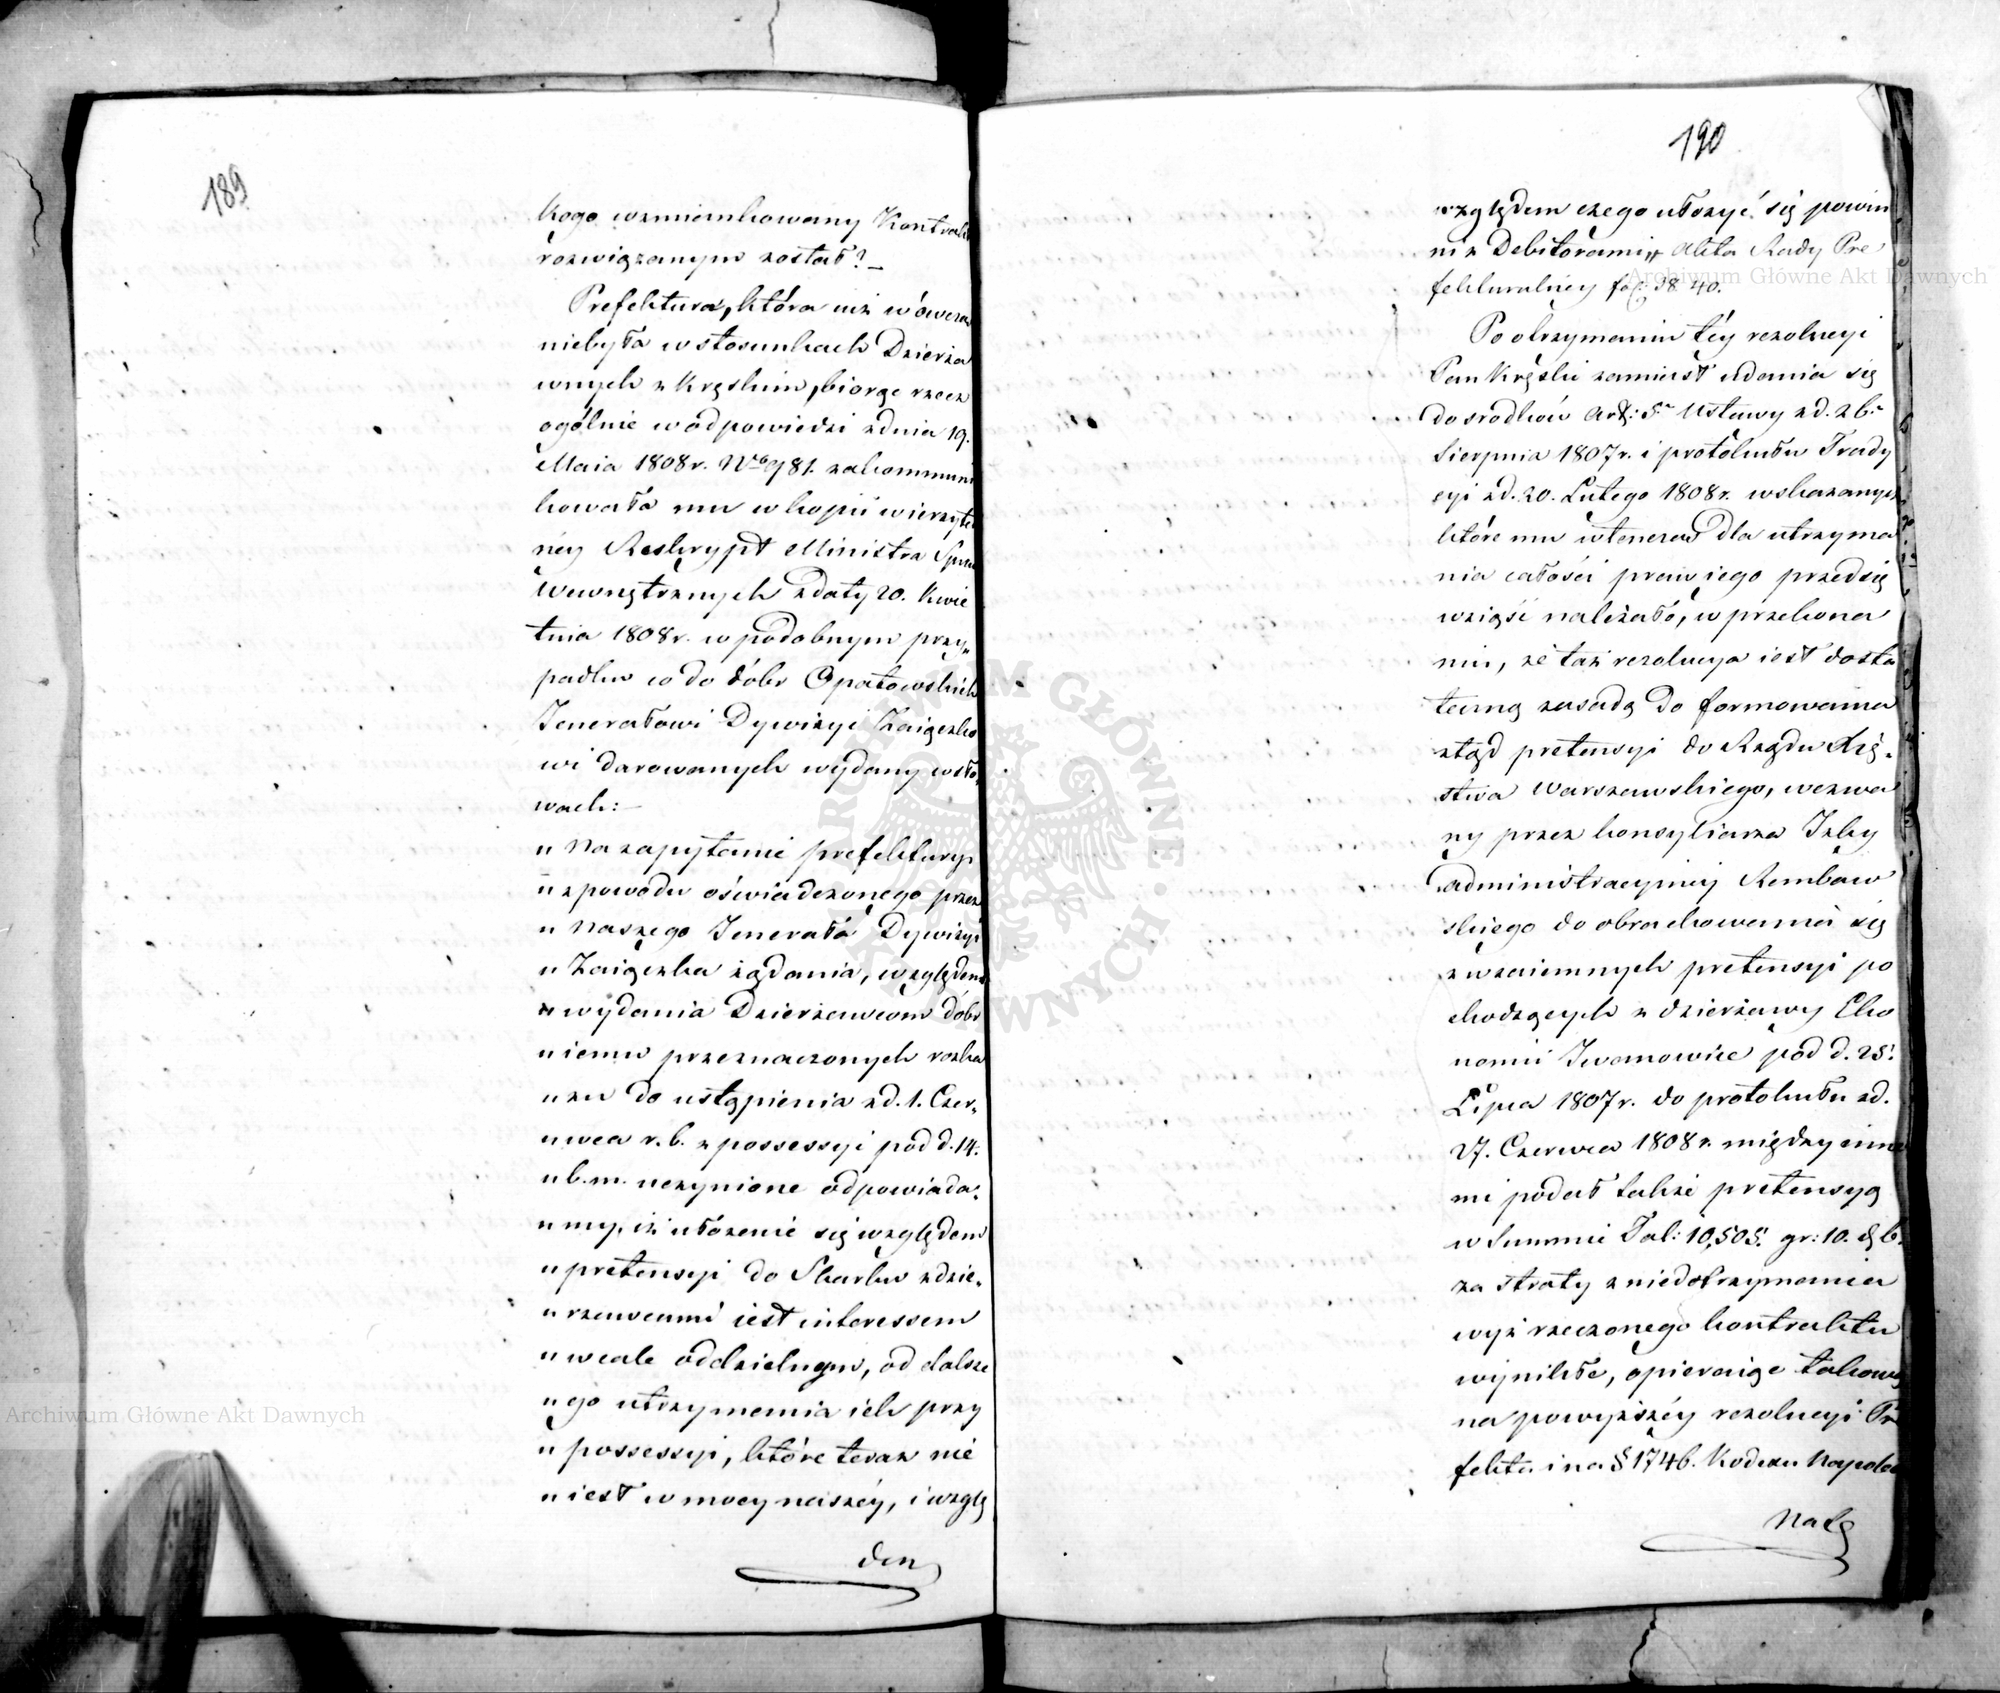 189
kogo wzmiankowany Kontrakt
rozwiązanym został? –
Prefektura, która iuż wówczas
niebyła w stosunkach Dzierża
wnych z Kręskim, biorąc rzecz
ogólnie w odpowiedzi z dnia 19.
Maia 1808 r. Nro 981. zakommuni
kowała mu w kopii wierzytel
ney Reskrypt Ministra Spraw
Wewnętrznych z daty 20. Kwie
tnia 1808 r. w podobnym przy„
padku co do dóbr Opatowskich
Jenerałowi Dywizyi Zaiączko
wi darowanych wydany w sło„
wach: –
„ Na zapytanie prefektury
„ z powodu oświadczonego przez
„ Naszego Jenerała Dywizyi
„ Zaiączka żądania, względem
„ wydania Dzierżawcom dóbr
„ iemu przeznaczonych rozka
„ zu do ustąpienia z d. 1. Czer„
„ wca r. b. z possessyi pod d. 14.
„ b. m. uczynione odpowiada„
„ my, iż ułożenie się względem
„ pretensyi do Skarbu z dzie„
„ rżawcami iest interessem
„ wcale oddzielnym, od dalsze
„ go utrzymania ich przy
„ possessyi, które teraz nie
„ iest w mocy naszéy, i wzglę
dem
190
względem czego ułożyć się powin
ni z Debitorami„ Akta Rady Pre
fekturalney fol: 38. 40.
Po otrzymaniu téy rezolucyi
Pan Kręski zamiast udania się
do srodków Art: 5. Ustawy z d. 26.
Sierpnia 1807 r. i protokułu Trady
cyi z d. 20. Lutego 1808 r. wskazanych
które mu wtenczas dla utrzyma
nia całości praw iego przedsię
wziąść należało, w przekona
niu, że taż rezolucya iest dosta
teczną zasadą do formowania
ztąd pretensyi do Rządu Xię„
stwa Warszawskiego, wezwa
ny przez konsyliarza Izby
administracyiney Rembow
skiego do obrachowania się
z wzaiemnych pretensyi po
chodzących z dzierżawy Eko
nomii Iwanowice pod d. 25.
Lipca 1807 r. do protokułu z d.
27. Czerwca 1808 r. między inne
mi podał także pretensyą
w Summie Tal: 10,505. gr: 10. d 6.
za straty z niedotrzymania
wyż rzeczonego kontraktu
wynikłe, opieraiąc takową
na powyższéy rezolucyi Pre
fekta i na § 1746. Kodexu Napoleo
Należ
Archiwum Główne Akt Dawnych
Archiwum Główne Akt Dawnych